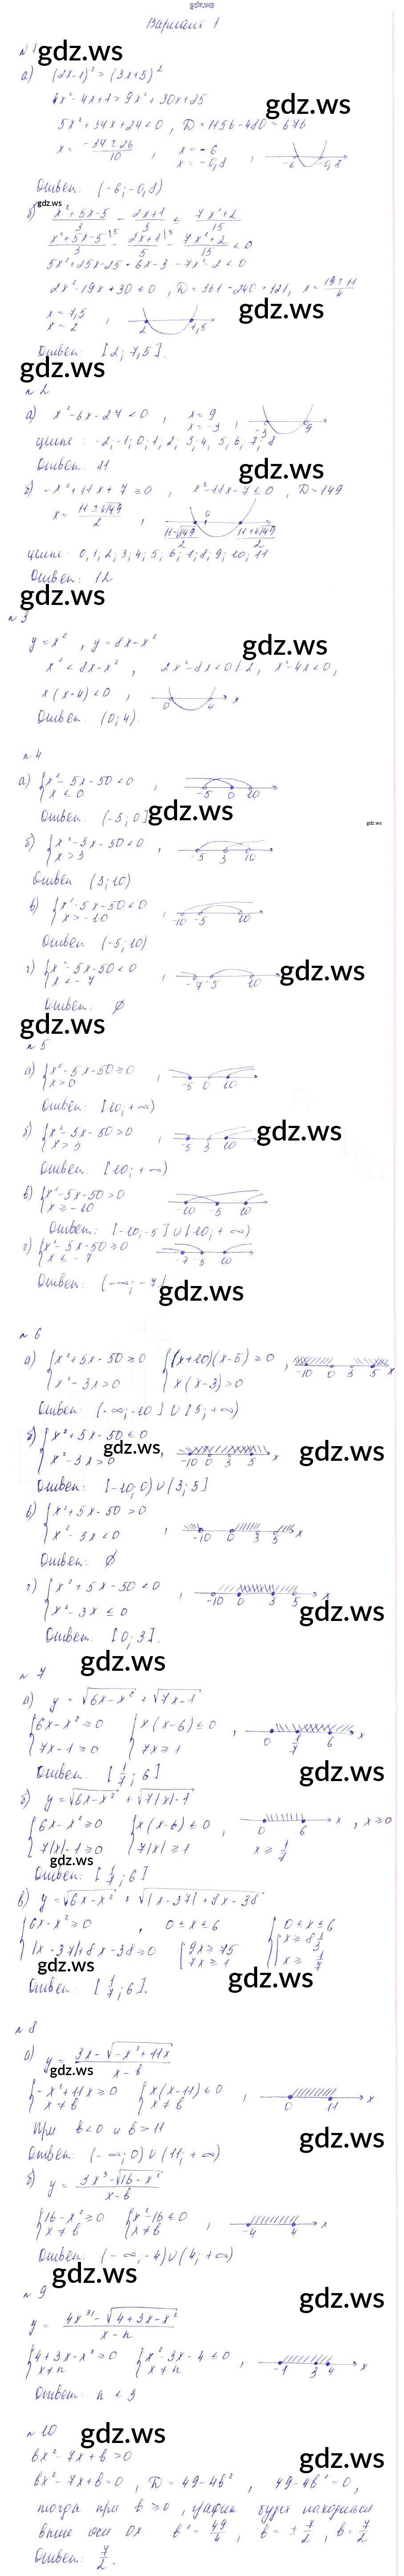 gdz.ws
Вариант 1
№1 gdz.ws
а) (2x-1)² > (3x+5)²
4x²-4x+1 > 9x²+30x+25
gdz.ws
5x²+34x+24<0, D = 1156-480 = 676
x = (-34±26)/10, x = -6
x = -0,8, -6 -0,8
Ответ: (-6; -0,8)
gdz.ws
б) (x²+5x-5)/3 - (2x+1)/3 < (7x²+2)/15
(x²+5x-5)/3 - (2x+1)/5 - (7x²+2)/15 < 0
5x²+25x-25-6x-3-7x²-2<0
2x²-19x+30≤0, D = 361-240=121, x = (19±11)/4
gdz.ws
x = 7,5
x = 2, 2 7,5
Ответ: [2; 7,5].
gdz.ws
№2
а) x²-6x-27<0, x=9
x=-3, -3 9
целые: -2;-1;0;1;2;3;4;5;6;7;8
Ответ: 11
gdz.ws
б) -x²+11x+7≥0, x²-11x-7≤0, D=149
x = (11±√149)/2, 0 (11-√149)/2 (11+√149)/2
целые: 0;1;2;3;4;5;6;7;8;9;10;11
Ответ: 12
gdz.ws
№3
y=x², y=8x-x²
gdz.ws
x²<8x-x², 2x²-8x<0|:2, x²-4x<0,
x(x-4)<0, 0 4 x
Ответ: (0;4).
№4
а) {x²-5x-50<0
x≤0, -5 0 10
Ответ: (-5;0]
gdz.ws
gdz.ws
б) {x²-5x-50<0
x>3, -5 3 10
Ответ (3;10)
в) {x²-5x-50<0
x>-10, -10 -5 10
Ответ (-5;10)
г) {x²-5x-50<0
x<-7, -7 -5 10
gdz.ws
Ответ: ∅
gdz.ws
№5
а) {x²-5x-50≥0
x>0, -5 0 10
Ответ: [10;+∞)
б) {x²-5x-50>0
x>3, -5 3 10
gdz.ws
Ответ: [10;+∞)
в) {x²-5x-50>0
x≥-10, -10 -5 10
Ответ: [-10;-5]∪[10;+∞)
г) {x²-5x-50≥0
x≤-7, -7 -5 10
Ответ: (-∞;-7]
gdz.ws
№6
а) {x²+5x-50≥0 {(x+10)(x-5)≥0
x²-3x>0 x(x-3)>0, -10 0 3 5 x
Ответ: (-∞;-10]∪[5;+∞)
б) {x²+5x-50≤0
x²-3x>0, -10 0 3 5 x
gdz.ws
gdz.ws
Ответ: [-10;0)∪(3;5]
в) {x²+5x-50>0
x²-3x<0, -10 0 3 5 x
Ответ: ∅
г) {x²+5x-50<0
x²-3x≤0, -10 0 3 5 x
gdz.ws
Ответ: [0;3].
gdz.ws
№7
а) y = √(6x-x²) + √(7x-1)
{6x-x²≥0 {x(x-6)≤0
7x-1≥0 7x≥1, 0 1/7 6 x
Ответ: [1/7;6]
gdz.ws
б) y = √(6x-x²) + √(7|x|-1)
{6x-x²≥0 {x(x-6)≤0, 0 6 x, x≥0
7|x|-1≥0 7|x|≥1 x≥1/7
gdz.ws
Ответ: [1/7;6]
в) y = √(6x-x²) + √(|x-37|+8x-38)
{6x-x²≥0, 0≤x≤6 {0≤x≤6
|x-37|+8x-38≥0 {9x≥75 7x≥1 {x≥8 1/3 x≥1/7
gdz.ws
gdz.ws
Ответ: [1/7;6].
№8
а) y = (3x-√(-x²+11x))/(x-b)
gdz.ws
{-x²+11x≥0 {x(x-11)≤0
x≠b x≠b, 0 11 x
При b<0 и b>11
gdz.ws
Ответ: (-∞;0)∪(11;+∞)
б) y = (3x³-√(16-x²))/(x-b)
{16-x²≥0 {x²-16≤0
x≠b x≠b, -4 4 x
Ответ: (-∞;-4)∪(4;+∞)
gdz.ws
№9
gdz.ws
y = (4x³¹-√(4+3x-x²))/(x-n)
{4+3x-x²≥0 {x²-3x-4≤0
x≠n x≠n, -1 3 4 x
Ответ: n<3
№10
gdz.ws
bx²-7x+b>0
gdz.ws
bx²-7x+b=0, D = 49-4b², 49-4b²=0,
тогда при b≥0, график будет находиться
выше оси Ox b²=49/4, b=±7/2, b=7/2
Ответ: 7/2.